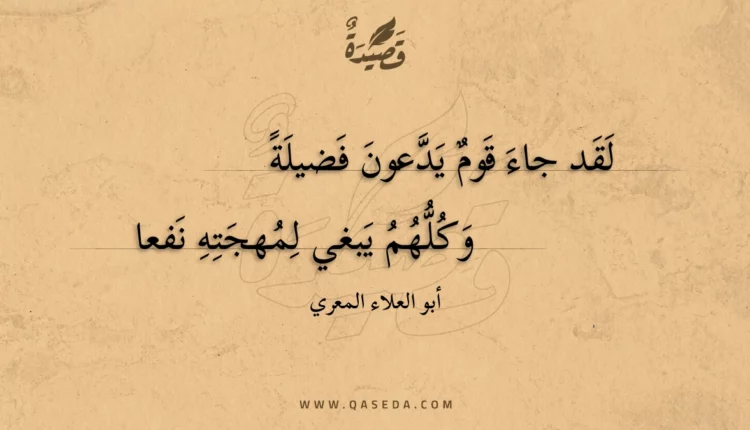 قَصِيدَةٌ
لَقَد جاءَ قَومٌ يَدَّعونَ فَضيلَةً
وَكُلُّهُمُ يَبغي لِمُهجَتِهِ نَفعا
أبو العلاء المعري
WWW.QASEDA.COM